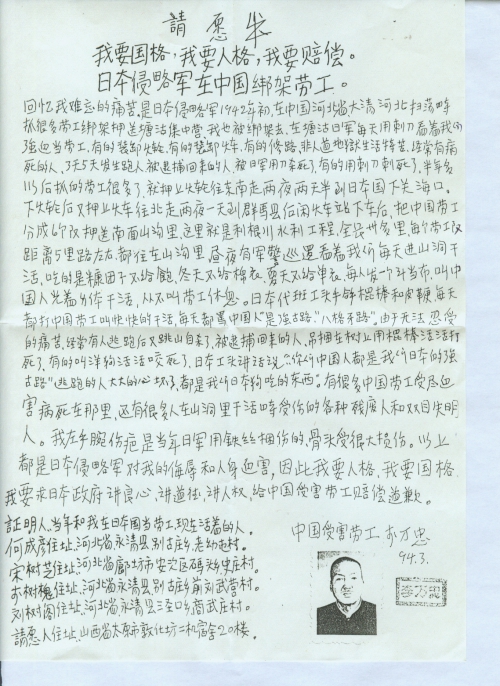 請愿书
我要国格，我要人格，我要赔偿。
日本侵略军在中国绑架劳工。
回忆我难忘的痛苦。是日本侵略军1942年初，在中国河北省大清河北扫荡时
抓很多劳工绑架押送塘沽集中营，我也被绑架去，在塘沽日军每天用刺刀看着我们
强迫当劳工，有的装火轮，有的装卸火车，有的修路，非人道地狱生活待苦，经常有病
死的人，3天5天发生跑人被逮捕回来的人，被日军用刀杀死了，有的用刺刀刺死了，半年多
以后抓的劳工很多了，就押上火轮往东南走两夜两天半到日本国下关海口。
下火轮后又押上火车往北走两夜一天到群馬县后闲火车站下车后，把中国劳工
分成4个又押送南面山沟里，这里就是利根川水利工程，全长卅多里，每个劳工
距离5里路左右，都住在山沟里，昼夜有军警巡逻看着我们每天进山洞干
活，吃的是糠团子不给飽，冬天不给棉衣，夏天不给单衣，每人发一斗当布，叫中
国人光着身体干活，从不叫劳工休息。日本代班工头手拿棍棒和皮鞭，每天
都打中国劳工叫快快的干活，每天都骂中国人是强古路，"八格不路"。由于无法忍受
的痛苦，经常有人逃跑后又跳山自杀了，被逮捕回来的人，吊捆在树上用棍棒活活打
死了，有的叫洋狗活活咬死了，日本工头讲话说："你们中国人都是我们日本的强
古路"逃跑的人大大的心坏了，都是我们日本狗吃的东西"。有很多中国劳工受尽迫
害病死在那里，还有很多人在山洞里干活时受伤的各种残废人和双目失明
人。我左手腕伤疤是当年日军用铁丝捆伤的，骨头受很大损伤。以上
都是日本侵略军对我的侮辱和人身迫害，因此我要人格，我要国格
我要求日本政府讲良心，讲道德，讲人权，给中国受害劳工赔偿道歉。
証明人，当年和我在日本国当劳工现在活着的人。
何成彦住址，河北省永清县别古庄乡，老幼屯村。
宋树芝住址，河北省廊坊市安次区码头乡史庄村。
李树槐住址，河北省永清县别古庄前刘武营村。
刘树阁住址，河北省永清县三圣口乡商武庄村。
請愿人住址，山西省太原市敦化坊二机宿舍20楼。
中国受害劳工 李万忠
94.3.
李万忠